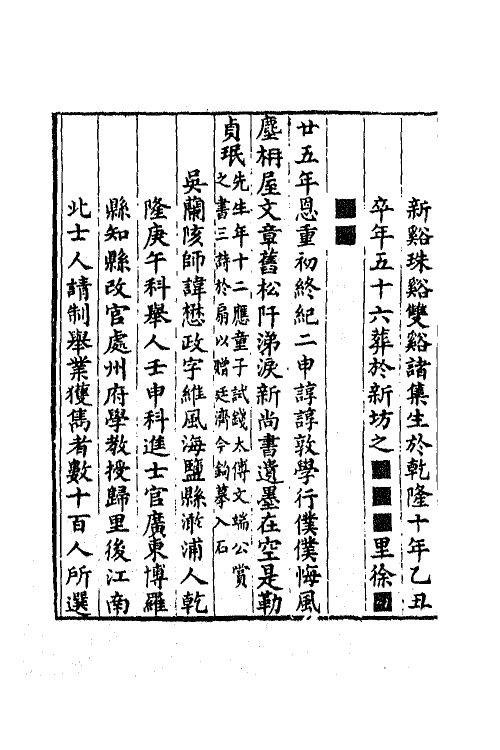 新谿珠谿雙谿諸集生於乾隆十年乙丑
卒年五十六葬於新坊之■■■里徐■
■■
廿五年恩重初終紀二申諄諄敦學行僕僕悔風
塵栴屋文章舊松阡涕淚新尚書遺墨在空是勒
貞珉先生年十二應童子試錢太傅文端公賞
之書三詩於扇以贈廷濟今鉤摹入石
吳蘭陔師諱懋政字維風海鹽縣澉浦人乾
隆庚午科舉人壬申科進士官廣東博羅
縣知縣改官處州府學教授歸里後江南
北士人請制舉業獲雋者數十百人所選